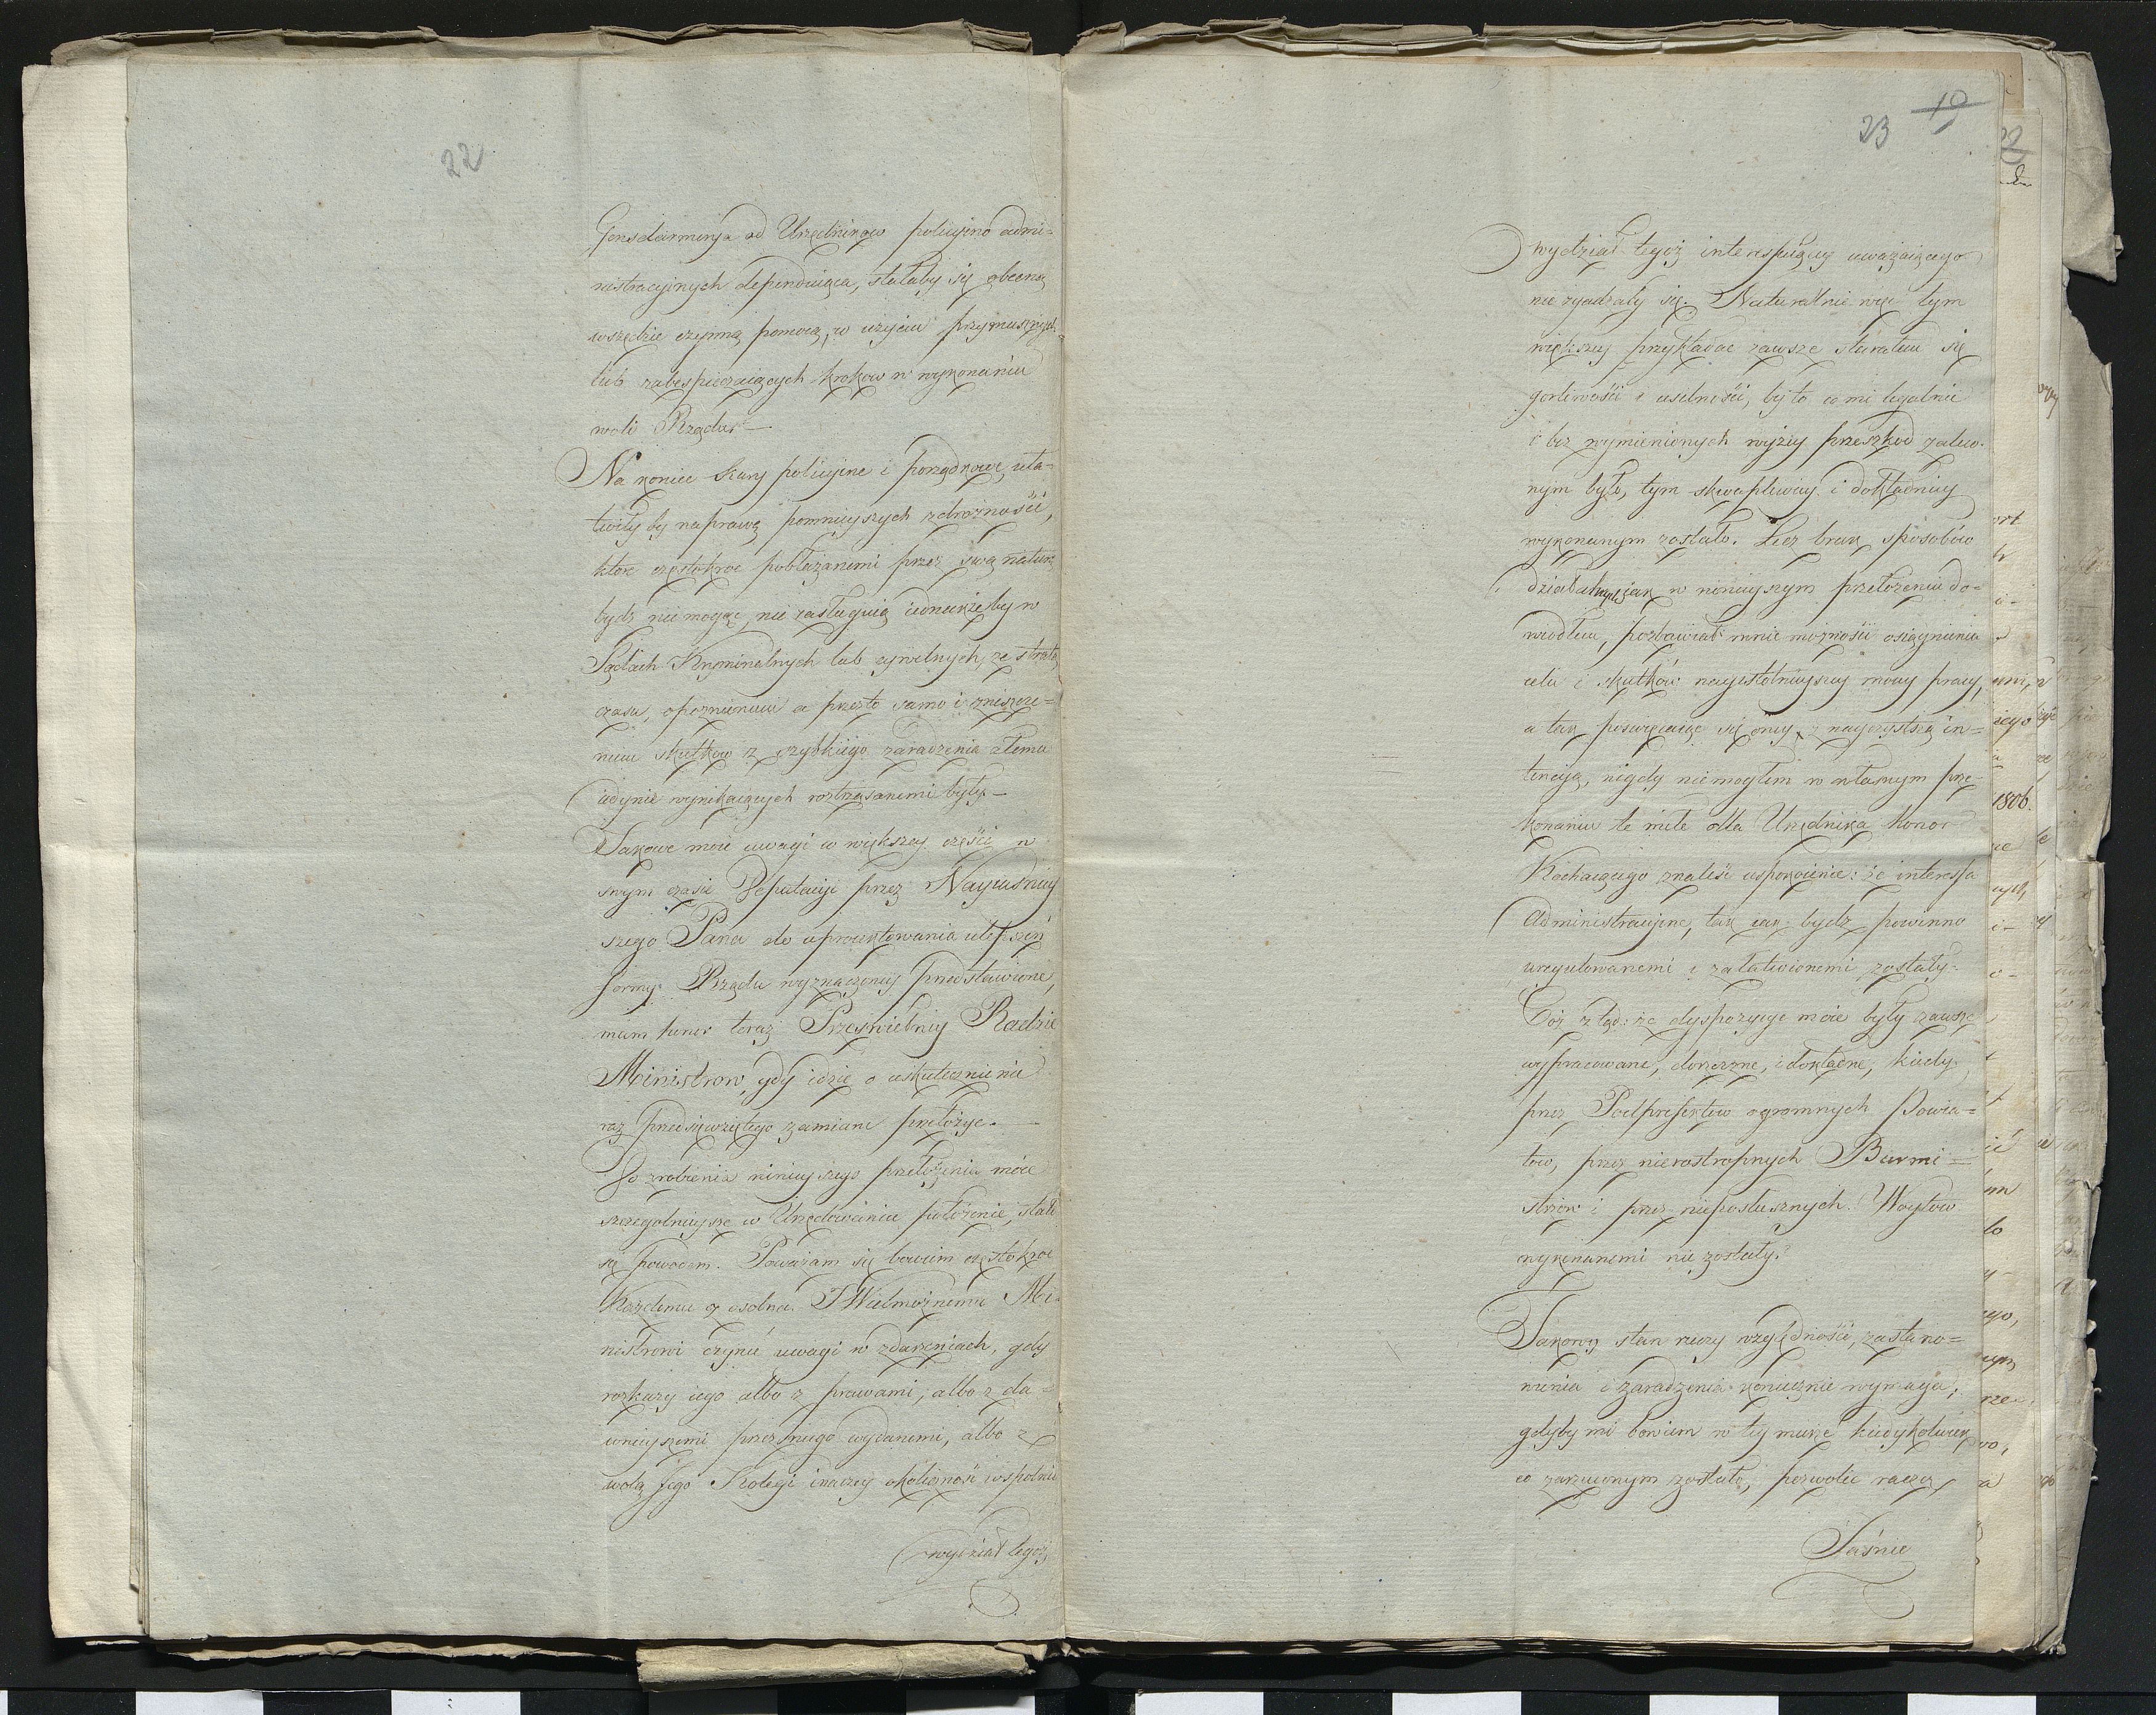 22
Gensdarmerya od Urzędnikow policyino admi=
nistracyjnych dependuiąca, stałaby się obecną
wszędzie czynną pomocą, w użyciu przymusznych
lub zabespieczaiących krokow w wykonaniu
woli Rządu. —
Na koniec kary policyine i porządkowe uła-
twiły by naprawę pomnieyszych zdrożności,
ktore częstokroc pobłażanemi przez swą naturę
bydz nie mogąc, nie zasługuią iednakże by w
Sądach Kryminalnych lub cywilnych, ze stratą
czasu, opoznieniem a przez to samo i zniszcze=
niem skutkow z szybkiego zaradzenia złemu
iedynie wynikaiących roztrząsanemi były. —
Takowe moie uwagi w większey części w
swym czasie Deputacyi przez Nayiaśniey
szego Pana do uproiektowania ulepszeń
formy Rządu wyznaczoney przedstawione,
mam honor teraz Prześwietney Radzie
Ministrow, gdy idzie o uskutecznienie
raz przedsięwziętego zamiaru przełożyc. —
Do zrobienia ninieyszego przełożenia moie
szczegolnieysze w Urzędowaniu położenie, stało
się powodem. Poważam się bowiem częstokroc
Każdemu z osobna JWielmożnemu Mi-
nistrowi czynić uwagi w zdarzeniach, gdy
rozkazy iego albo z prawami, albo z da=
wnieyszemi przez niego wydanemi, albo z
wolą Jego Kolegi inaczey okoliczność wspolnie
wydział tegoż
19
23
wydział tegoż interesuiącey uważaiącego
nie zgadzały się. Naturalnie więc tym
większey przykładac zawsze starałem się
gorliwości i usilności, by to co mi legalnie
i bez wymienionych wyżey przeszkod zaleco-
nym było, tym skwapliwiey i dokładniey
wykonanym zostało. Lecz brak sposobów
działalney jak w ninieyszym przełożeniu do-
wiodłem, pozbawiał mnie możności osiągnienia
celu i skutków nayistotnieyszey moiey pracy,
a tak poswięcaiąc się oney z nayczystszą in=
tencyą, nigdy nie mogłem w własnym prze-
konaniu te miłe dla Urzędnika honor
Kochaiącego znaleść uspokoienie: że interessa
administracyine, tak iak bydz powinno
uregulowanemi i załatwionemi zostały.
Coż z tąd: że dyspozycye moie były zawsze
wypracowane, dorzeczne, i dokładne, kiedy
przez Podprefektow ogromnych Powia=
tow, przez nieroztropnych Burmi=
strzow i przez nieposłusznych Woytow
wykonanemi nie zostały.
Takowy stan rzeczy względności, zastano=
wienia i zaradzenia koniecznie wymaga;
gdyby mi bowiem w tey mierze kiedykolwiek
co zarzuconym zostało, pozwolic raczą
Jaśnie